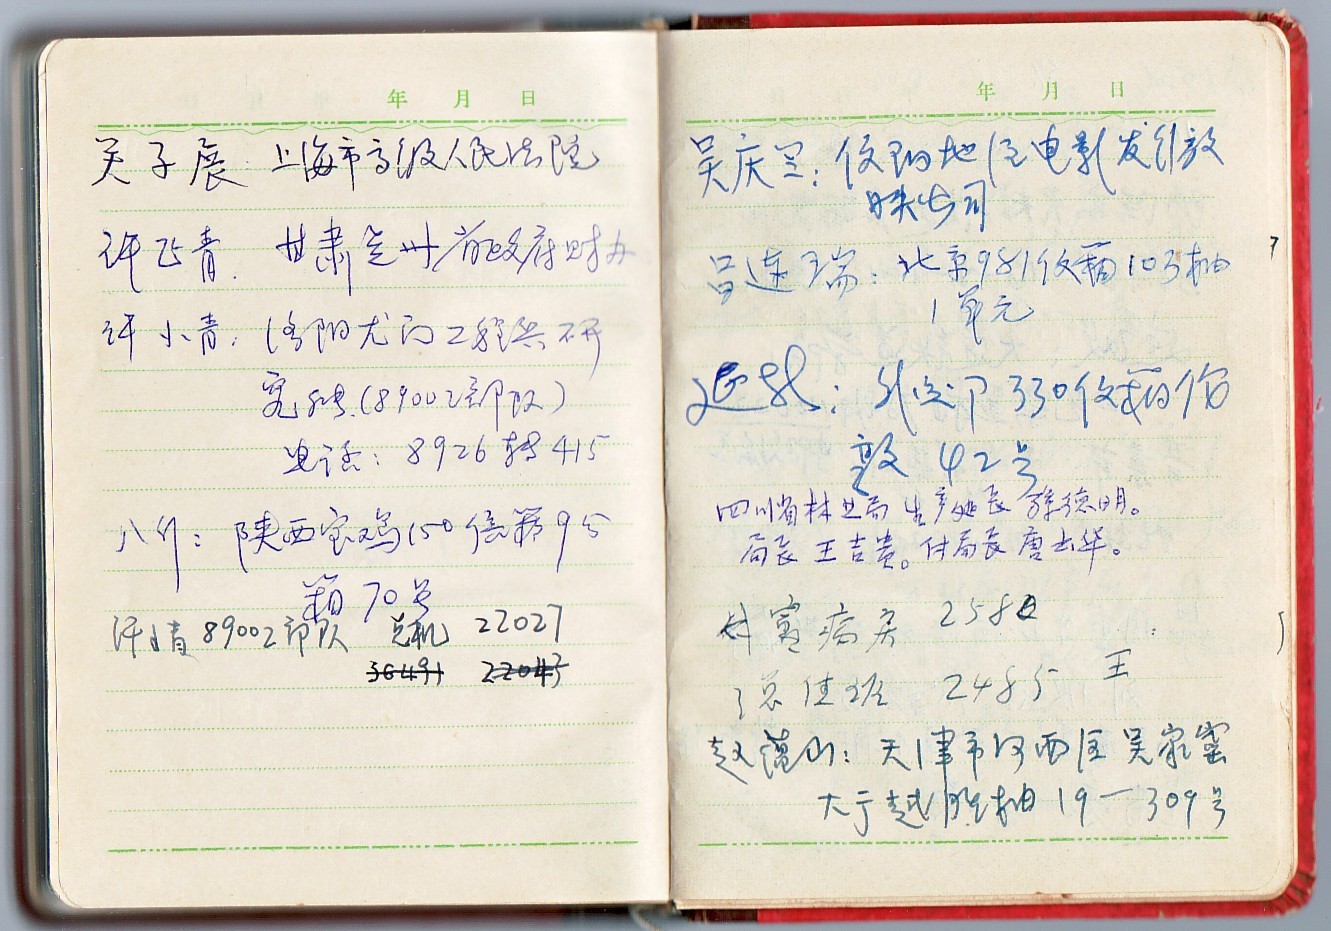 年 月 日
关子展: 上海市高级人民法院
许飞青: 甘肃兰州省政府财办
许小青: 洛阳 工程 研
究所(89002部队)
电话: 8926转415
八斤: 陕西宝鸡150信箱9分
箱70号
许小青 89002部队 总机 22027
36491 22043
年 月 日
吴庆兰: 地区电影发行放
映公司
吕连瑞: 北京981信箱103抽
1单元
延 : 330信箱 份
42号
四川省林业局 生产处长 徐德明。
局长 王吉贵。付局长 唐 华。
病房 258
值班 248 王
赵 山: 天津市河西区吴家窑
大于越胜抽19一309号